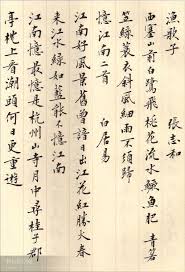 漁歌子 張志和
西塞山前白鷺飛桃花流水鱖魚肥青箬
笠綠蓑衣斜風細雨不須歸
江南憶二首
白居易
江南好風景舊曾諳日出江花紅勝火春
來江水綠如藍能不憶江南
江南憶最憶是杭州山寺月中尋桂子郡
亭枕上看潮頭何日更重遊